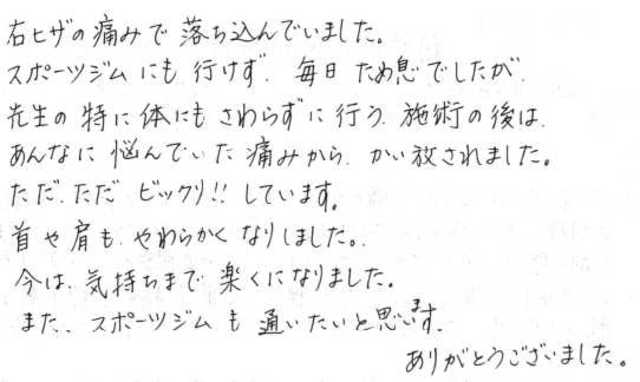 右ヒザの痛みで落ち込んでいました。
スポーツジムにも行けず、毎日ため息でしたが、
先生の特に体にもさわらずに行う、施術の後は、
あんなに悩んでいた痛みから、かい放されました。
ただ、ただビックリ!!しています。
首や肩も、やわらかくなりしました。
今は、気持ちまで楽くになりました。
また、スポーツジムも通いたいと思います。
ありがとうございました。